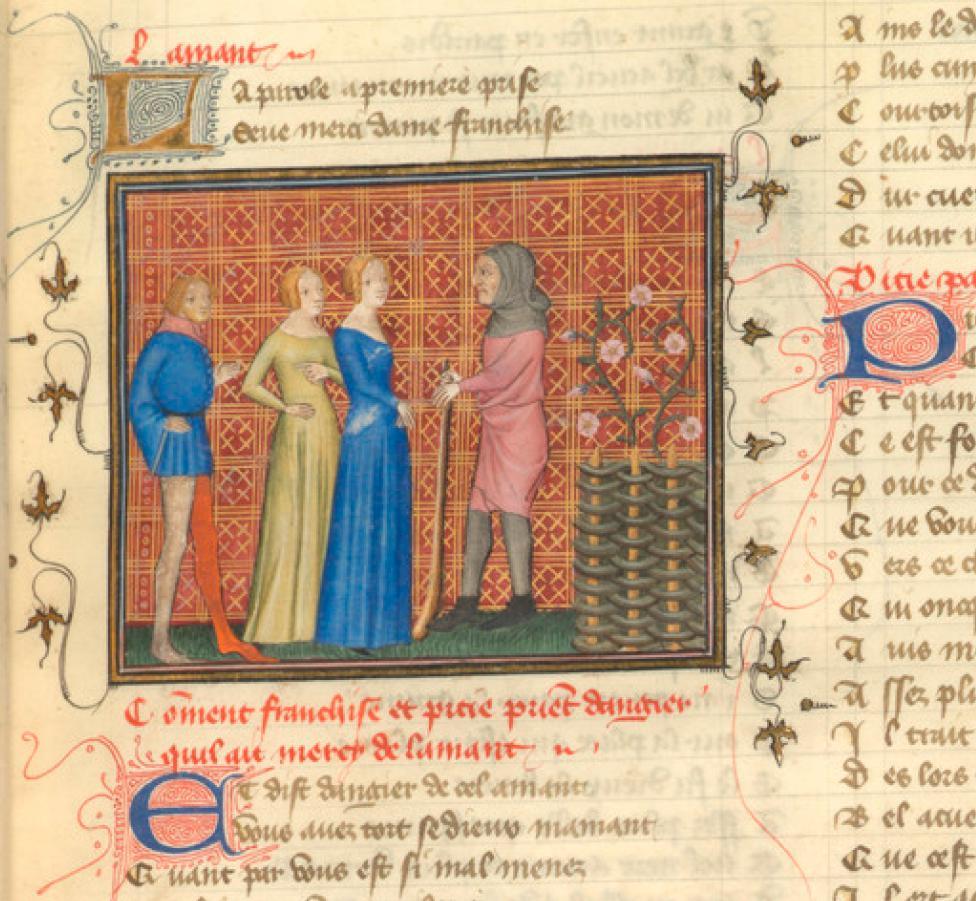 L amant
L A parole a premiere prise
Seue merci dame franchise
Cōment franchise et pitie priēt dangier
quil ait mercy de lamant
E T dist dangier de cel amant
Vous auez tort se dieux mamant
Quant par vous est si mal menez
A ins le d
P lus cun
C ourtois
C elui don
D ur cue
Q uant
Pitie pa
P
E t quan
C e est fo
P our ce
Q ue vou
V ers ce
Q ui onc
A uis m
A ssez pl
I l trait
D es lors
B el acue
Q ue cest